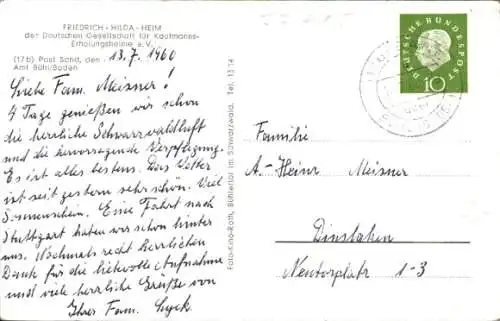 FRIEDRICH - HILDA - HEIM
der Deutschen Gesellschaft für Kaufmanns-
Erholungsheime e.V.
(17b) Post Sand, den 13.7.1960
Amt Bühl/Baden
Liebe Fam. Meisner!
4 Tage genießen wir schon
die herrliche Schwarzwaldluft
und die hervorragende Verpflegung.
Es ist alles bestens. Das Wetter
ist seit gestern sehr schön. Viel
Sonnenschein. Eine Fahrt nach
Stuttgart haben wir schon hinter
uns. Nochmals recht herzlichen
Dank für die liebevolle Aufnahme
und viele herzliche Grüße von
Ihrer Fam.
Foto-Kino-Roth, Bühlertal im Schwarzwald, Tel. 13 14
DEUTSCHE BUNDESPOST
10
Familie
A.-Heinz Meisner
Dinslaken
Neutorplatz 1-3